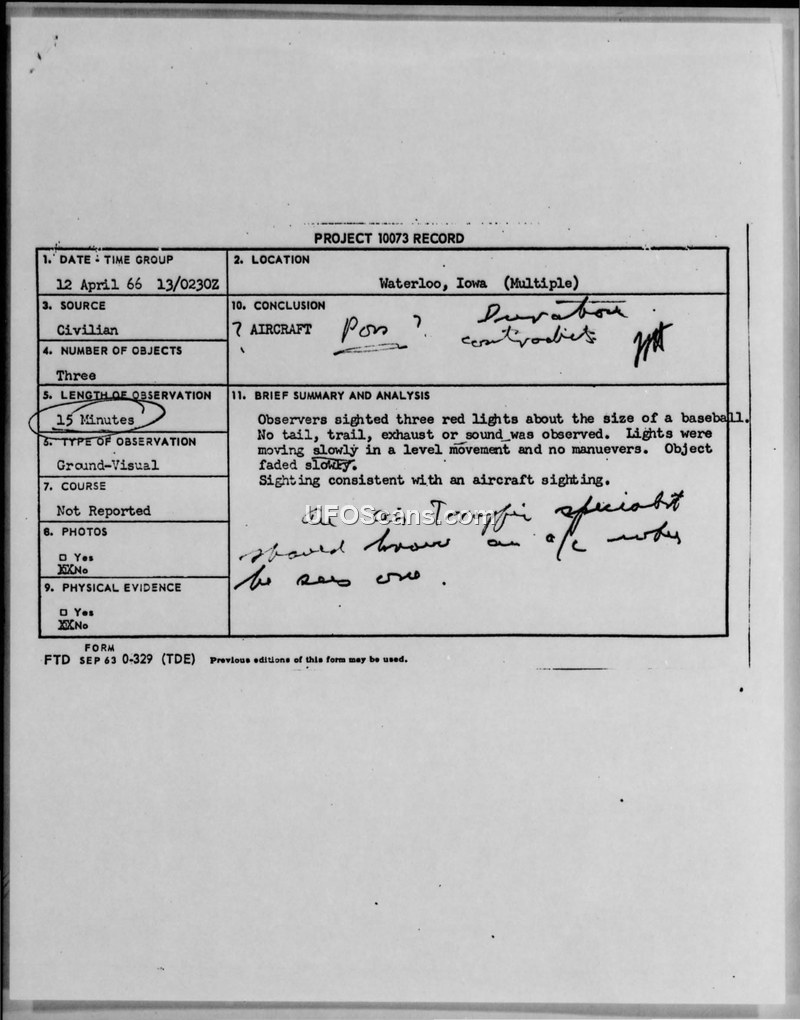 PROJECT 10073 RECORD
1. DATE - TIME GROUP
12 April 66 13/0230Z
2. LOCATION
Waterloo, Iowa (Multiple)
3. SOURCE
Civilian
10. CONCLUSION
? AIRCRAFT Poss ? Duration
contradicts
4. NUMBER OF OBJECTS
Three
5. LENGTH OF OBSERVATION
15 Minutes
11. BRIEF SUMMARY AND ANALYSIS
Observers sighted three red lights about the size of a baseball.
No tail, trail, exhaust or sound was observed. Lights were
moving slowly in a level movement and no manuevers. Object
faded slowly.
Sighting consistent with an aircraft sighting.
air Traffic specialist
should know an a/c when
he sees one.
6. TYPE OF OBSERVATION
Ground-Visual
7. COURSE
Not Reported
8. PHOTOS
□ Yes
XXNo
9. PHYSICAL EVIDENCE
□ Yes
XXNo
FORM
FTD SEP 63 0-329 (TDE) Previous editions of this form may be used.
UFOScans.com